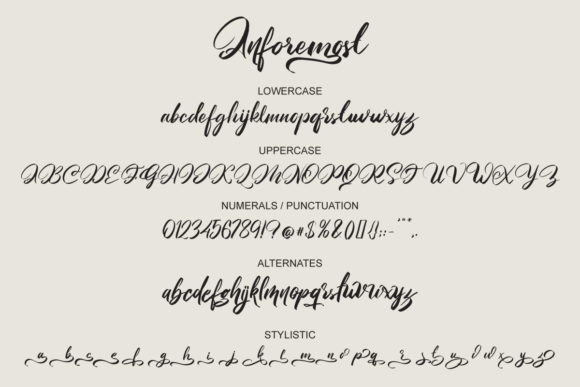 Inforemost
LOWERCASE
abcdefghijklmnopqrstuvwxyz
UPPERCASE
ABCDEFGHIJKLMNOPQRSTUVWXYZ
NUMERALS / PUNCTUATION
0123456789!?@#$%&()[]{};:-'"*,.
ALTERNATES
abcdefghijklmnopqrstuvwxyz
STYLISTIC
a b c d e f g h i j k l m n o p q r s t u v w x y z